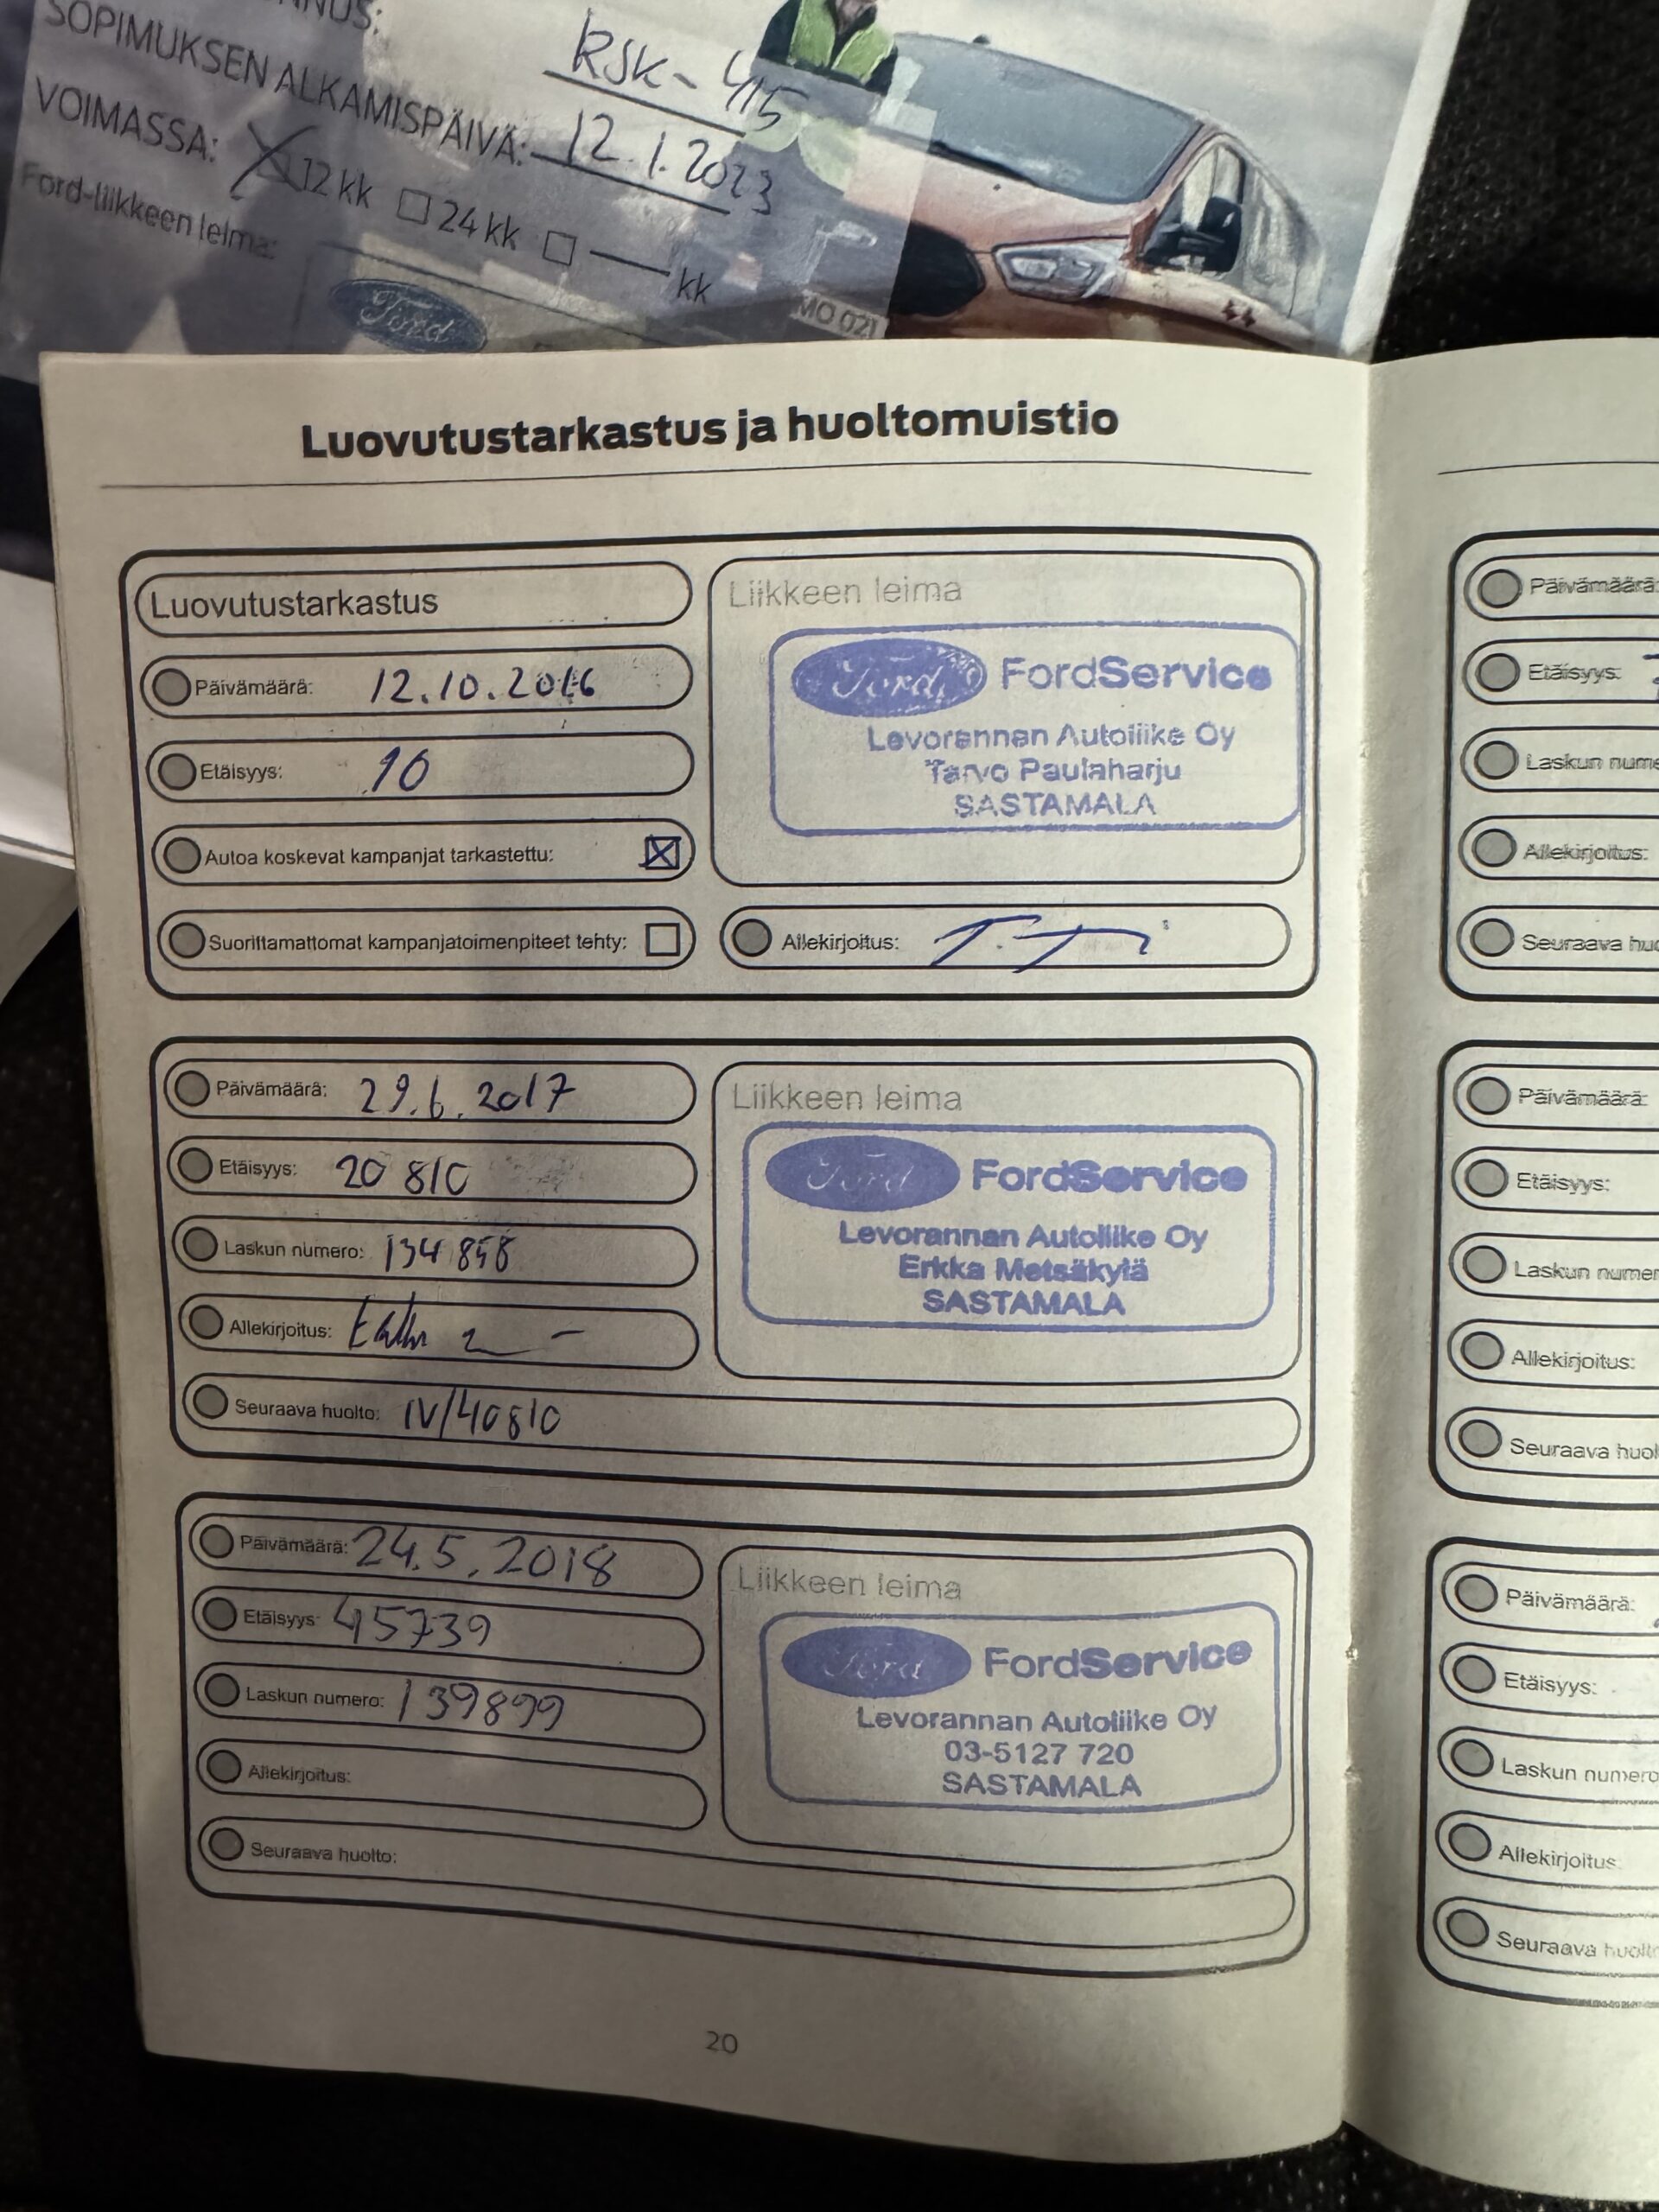 SOPIMUKSEN ALKAMISPÄIVÄ: 12.1.2023
RSK-415
VOIMASSA: 12 kk 24 kk kk
Ford-liikkeen leima:
Ford
MO 021
Luovutustarkastus ja huoltomuistio
Luovutustarkastus
Päivämäärä: 12.10.2016
Etäisyys: 10
Autoa koskevat kampanjat tarkastettu:
Suorittamattomat kampanjatoimenpiteet tehty:
Liikkeen leima
Ford FordService
Levorannan Autoliike Oy
Tarvo Paulaharju
SASTAMALA
Allekirjoitus:
Päivämäärä: 29.6.2017
Etäisyys: 20 810
Laskun numero: 134 858
Allekirjoitus:
Seuraava huolto: IV/40810
Liikkeen leima
Ford FordService
Levorannan Autoliike Oy
Erkka Metsäkylä
SASTAMALA
Päivämäärä: 24.5.2018
Etäisyys: 45739
Laskun numero: 139899
Allekirjoitus:
Seuraava huolto:
Liikkeen leima
Ford FordService
Levorannan Autoliike Oy
03-5127 720
SASTAMALA
20
Päivämäärä:
Etäisyys:
Laskun
Allekirjoitus:
Seuraava
Päivämäärä:
Etäisyys:
Laskun
Allekirjoitus:
Seuraava
Päivämäärä:
Etäisyys:
Laskun numero
Allekirjoitus
Seuraava